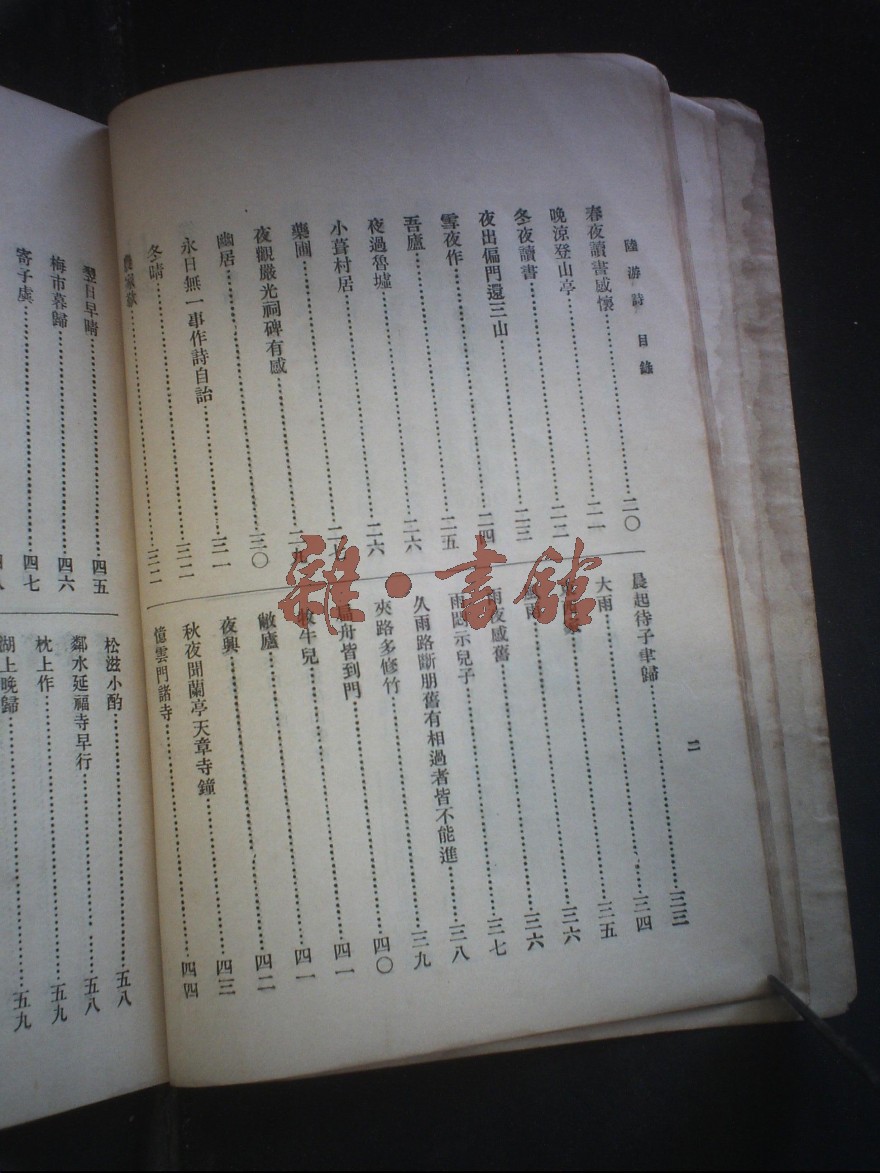 陸游詩 目錄
春夜讀書感懷……二〇
晚涼登山亭……二一
冬夜讀書……二二
夜出偏門還三山……二三
雪夜作……二四
吾廬……二五
夜過魯墟……二六
小葺村居……二六
藥圃……二七
夜觀嚴光祠碑有感……二九
幽居……三〇
永日無一事作詩自詒……三一
冬晴……三二
農家歎……三二
晨起待子聿歸……三三
大雨……三四
……三五
風雨……三六
雨夜感舊……三六
雨悶示兒子……三七
久雨路斷朋舊有相過者皆不能進……三八
夾路多修竹……三九
扁舟皆到門……四〇
牧牛兒……四一
敝廬……四一
夜興……四二
秋夜聞蘭亭天章寺鐘……四三
憶雲門諸寺……四四
二
翌日早晴……四五
梅市暮歸……四六
寄子虡……四七
松滋小酌……五八
鄰水延福寺早行……五八
枕上作……五九
湖上晚歸……五九
雜·書館